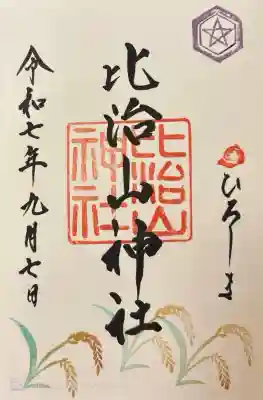 ひろしま
比治山神社
比治山
神社
令和七年九月七日